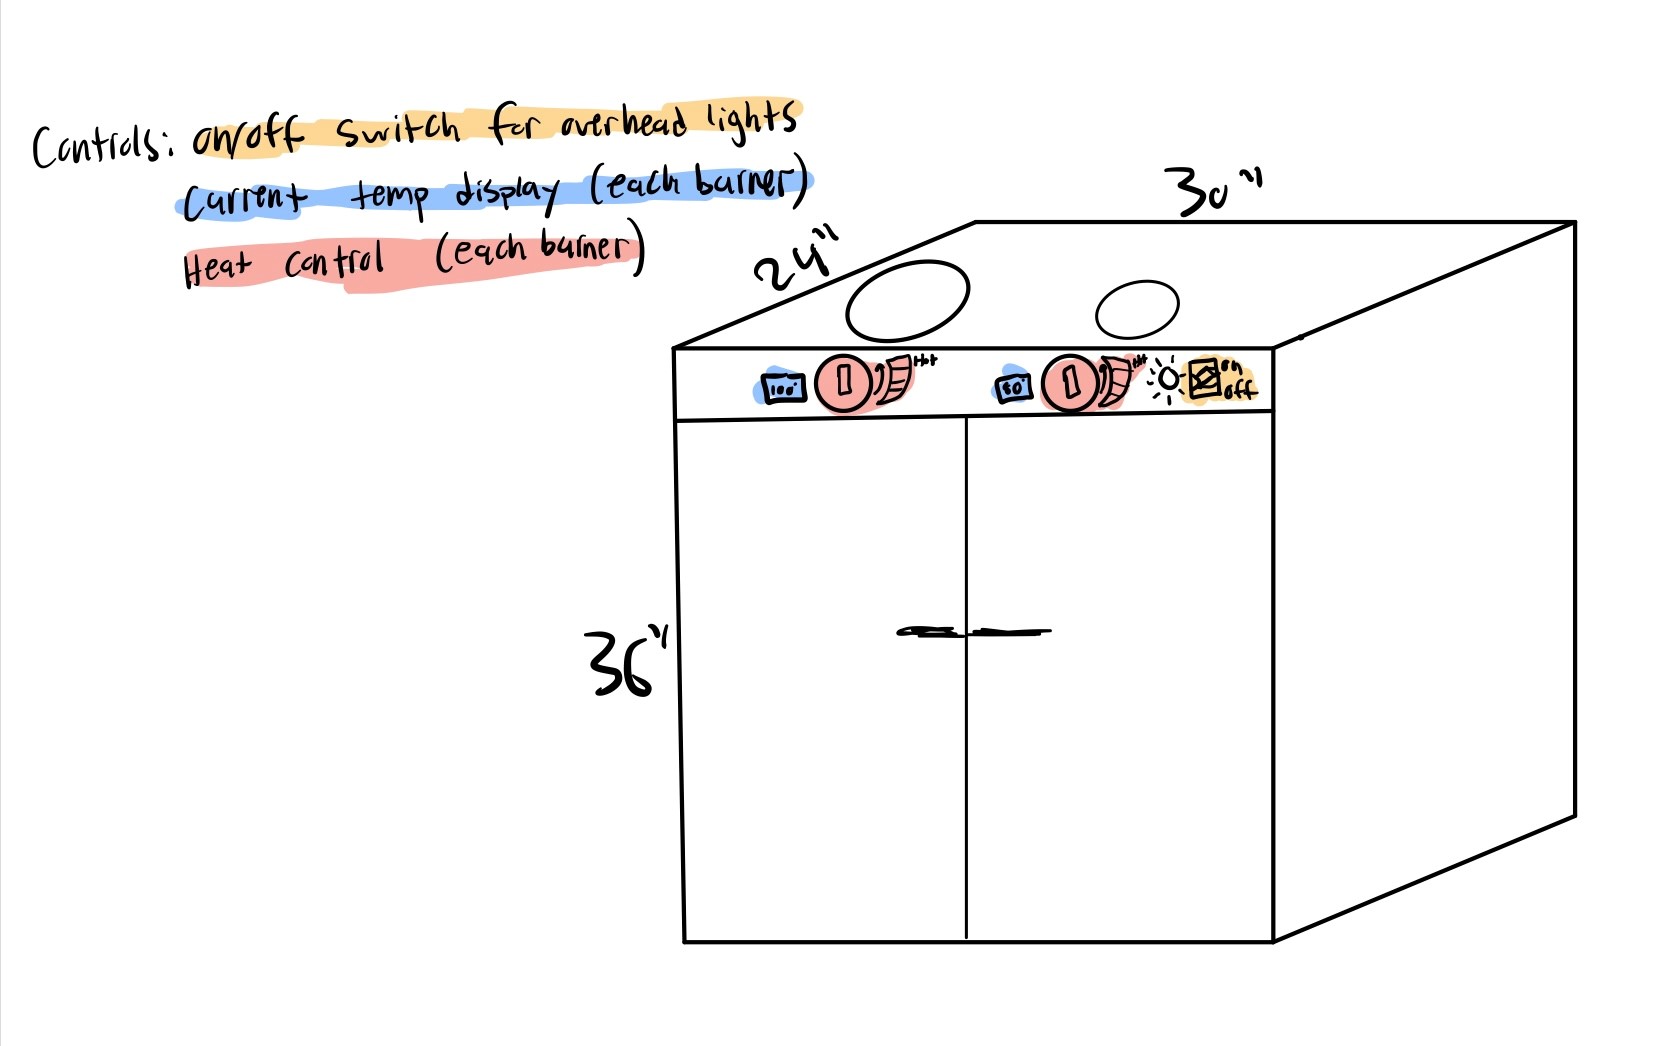 Controls: on/off switch for overhead lights
Current temp display (each burner)
Heat control (each burner)
30"
24"
100° Hot 80° Hot on
off
36"